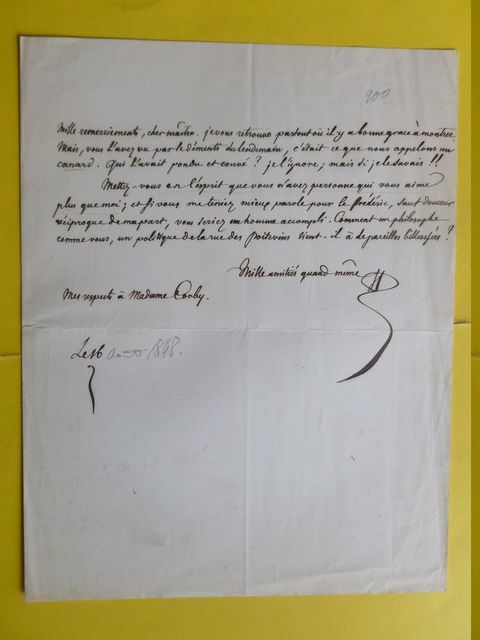 200
Mille remerciements, cher maître. je vous retrouve partout où il y a bonne grâce à montrer.
Mais, vous l'avez vu par le démenti du lendemain, c'était ce que nous appelons un
canard. Qui l'avait pondu et couvé ? je l'ignore; mais si je le savais !!
Mettez-vous en l'esprit que vous n'avez personne qui vous aime
plus que moi; et si vous me teniez mieux parole pour le frédéric, sauf douceur
réciproque de ma part, vous seriez un homme accompli. Comment un philosophe
comme vous, un politique de la rue des Poitevins tient-il à de pareilles billevesées ?
Mille amitiés quand même
Mes respects à Madame
Le 16 1848.